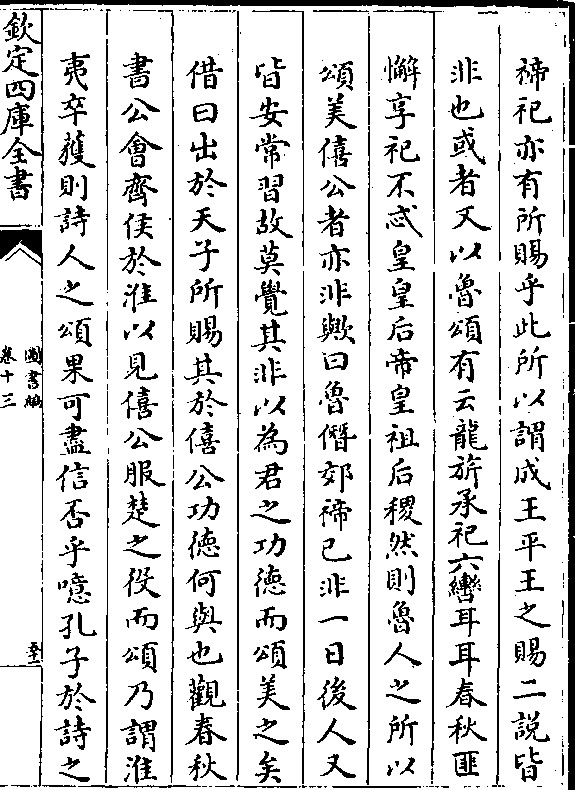 禘祀亦有所賜乎此所以謂成王平王之賜二說皆
非也或者又以魯頌有云龍旂承祀六轡耳耳春秋匪
懈享祀不忒皇皇后帝皇祖后稷然則魯人之所以
頌美僖公者亦非歟曰魯僭郊禘已非一日後人又
皆安常習故莫覺其非以為君之功德而頌美之矣
借曰出於天子所賜其於僖公功德何與也觀春秋
書公會齊侯於淮以見僖公服楚之役而頌乃謂淮
夷卒蒦則詩人之頌果可盡信否乎噫孔子於詩之
欽定四庫全書
圖書編
卷十三